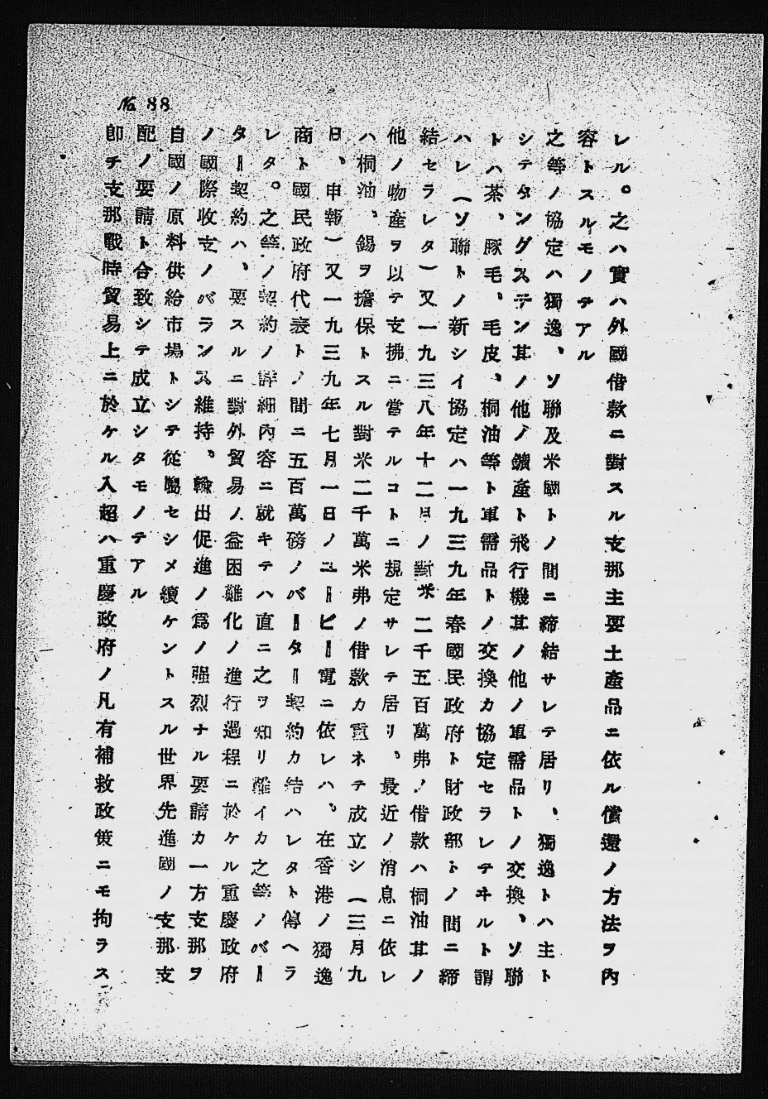 № 88
レル。之ハ實ハ外國借款ニ對スル支那主要土產品ニ依ル償還ノ方法ヲ內
容トスルモノテアル
之等ノ協定ハ獨逸、ソ聯及米國トノ間ニ締結サレテ居リ、獨逸トハ主ト
シテタングステン其ノ他ノ鑛產ト飛行機其ノ他ノ軍需品トノ交換、ソ聯
トハ茶、豚毛、毛皮、桐油等ト軍需品トノ交換カ協定セラレテヰルト謂
ハレ(ソ聯トノ新シイ協定ハ一九三九年春國民政府ト財政部トノ間ニ締
結セラレタ)又一九三八年十二月ノ對米二千五百萬弗ノ借款ハ桐油其ノ
他ノ物產ヲ以テ支拂ニ當テルコトニ規定サレテ居リ、最近ノ消息ニ依レ
ハ桐油、錫ヲ擔保トスル對米二千萬米弗ノ借款カ重ネテ成立シ(三月九
日、申報)又一九三九年七月一日ノユーピー電ニ依レハ、在香港ノ獨逸
商ト國民政府代表トノ間ニ五百萬磅ノバーター契約カ結ハレタト傳ヘラ
レタ。之等ノ契約ノ詳細內容ニ就キテハ直ニ之ヲ知リ難イカ之等ノバー
ター契約ハ、要スルニ對外貿易ノ益困難化ノ進行過程ニ於ケル重慶政府
ノ國際收支ノバランス維持、輸出促進ノ爲ノ强烈ナル要請カ一方支那ヲ
自國ノ原料供給市場トシテ從屬セシメ續ケントスル世界先進國ノ支那支
配ノ要請ト合致シテ成立シタモノテアル
卽チ支那戰時貿易上ニ於ケル入超ハ重慶政府ノ凡有補救政策ニモ拘ラス